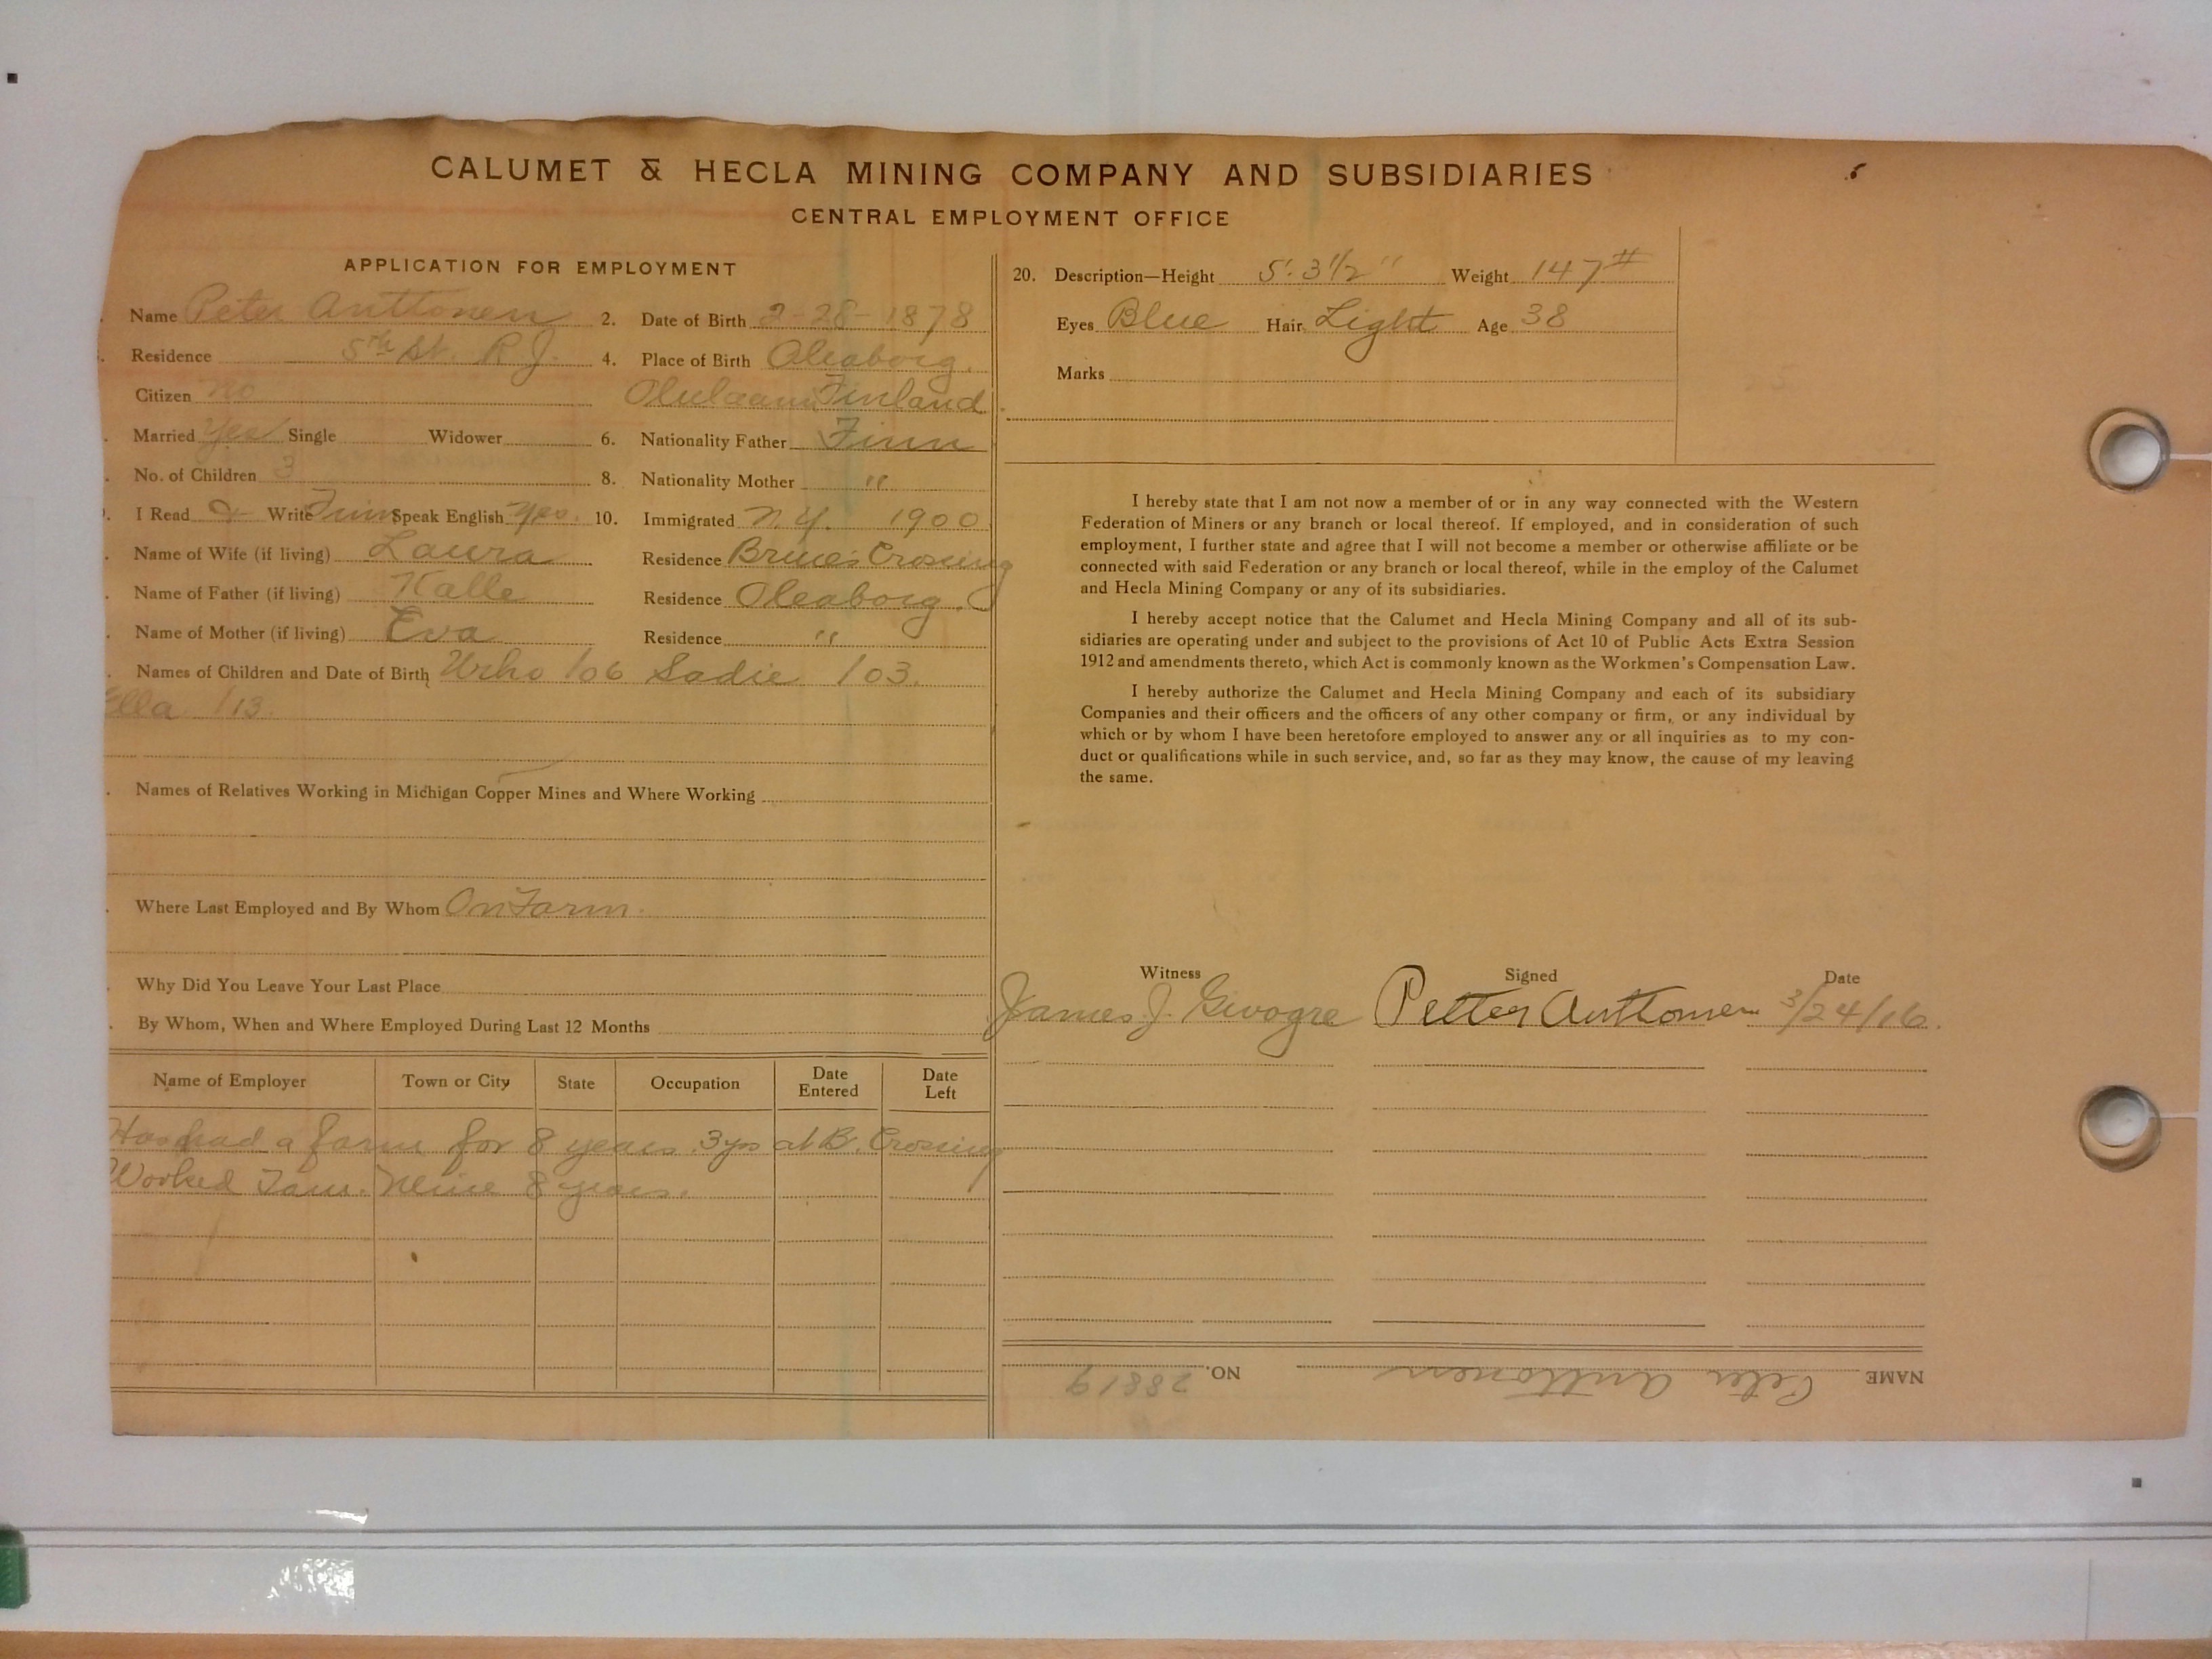 CALUMET & HECLA MINING COMPANY AND SUBSIDIARIES
CENTRAL EMPLOYMENT OFFICE
APPLICATION FOR EMPLOYMENT
Name Peter Anttonen 2. Date of Birth 2-28-1878
Residence 5th St. R.J. 4. Place of Birth Oleaborg.
Citizen no Finland
Married Yes Single Widower 6. Nationality Father Finn
No. of Children 3 8. Nationality Mother "
I Read & Write Finn Speak English Yes. 10. Immigrated N.Y. 1900
Name of Wife (if living) Laura Residence Bruce's Crossing
Name of Father (if living) Kalle Residence Oleaborg.
Name of Mother (if living) Eva Residence "
Names of Children and Date of Birth Urho /06 Sadie /03.
Ella /13.
Names of Relatives Working in Michigan Copper Mines and Where Working
Where Last Employed and By Whom On Farm.
Why Did You Leave Your Last Place
By Whom, When and Where Employed During Last 12 Months
Name of Employer Town or City State Occupation Date Entered Date Left
Has had a farm for 8 years. 3 yrs at B. Crossing
Worked Tam. Mine 8 years.
20. Description—Height 5'. 3 1/2" Weight 147#
Eyes Blue Hair Light Age 38
Marks
I hereby state that I am not now a member of or in any way connected with the Western
Federation of Miners or any branch or local thereof. If employed, and in consideration of such
employment, I further state and agree that I will not become a member or otherwise affiliate or be
connected with said Federation or any branch or local thereof, while in the employ of the Calumet
and Hecla Mining Company or any of its subsidiaries.
I hereby accept notice that the Calumet and Hecla Mining Company and all of its sub-
sidiaries are operating under and subject to the provisions of Act 10 of Public Acts Extra Session
1912 and amendments thereto, which Act is commonly known as the Workmen's Compensation Law.
I hereby authorize the Calumet and Hecla Mining Company and each of its subsidiary
Companies and their officers and the officers of any other company or firm, or any individual by
which or by whom I have been heretofore employed to answer any or all inquiries as to my con-
duct or qualifications while in such service, and, so far as they may know, the cause of my leaving
the same.
Witness Signed Date
James J. Petter Anttonen 3/24/16.
NAME Peter Anttonen NO. 28819